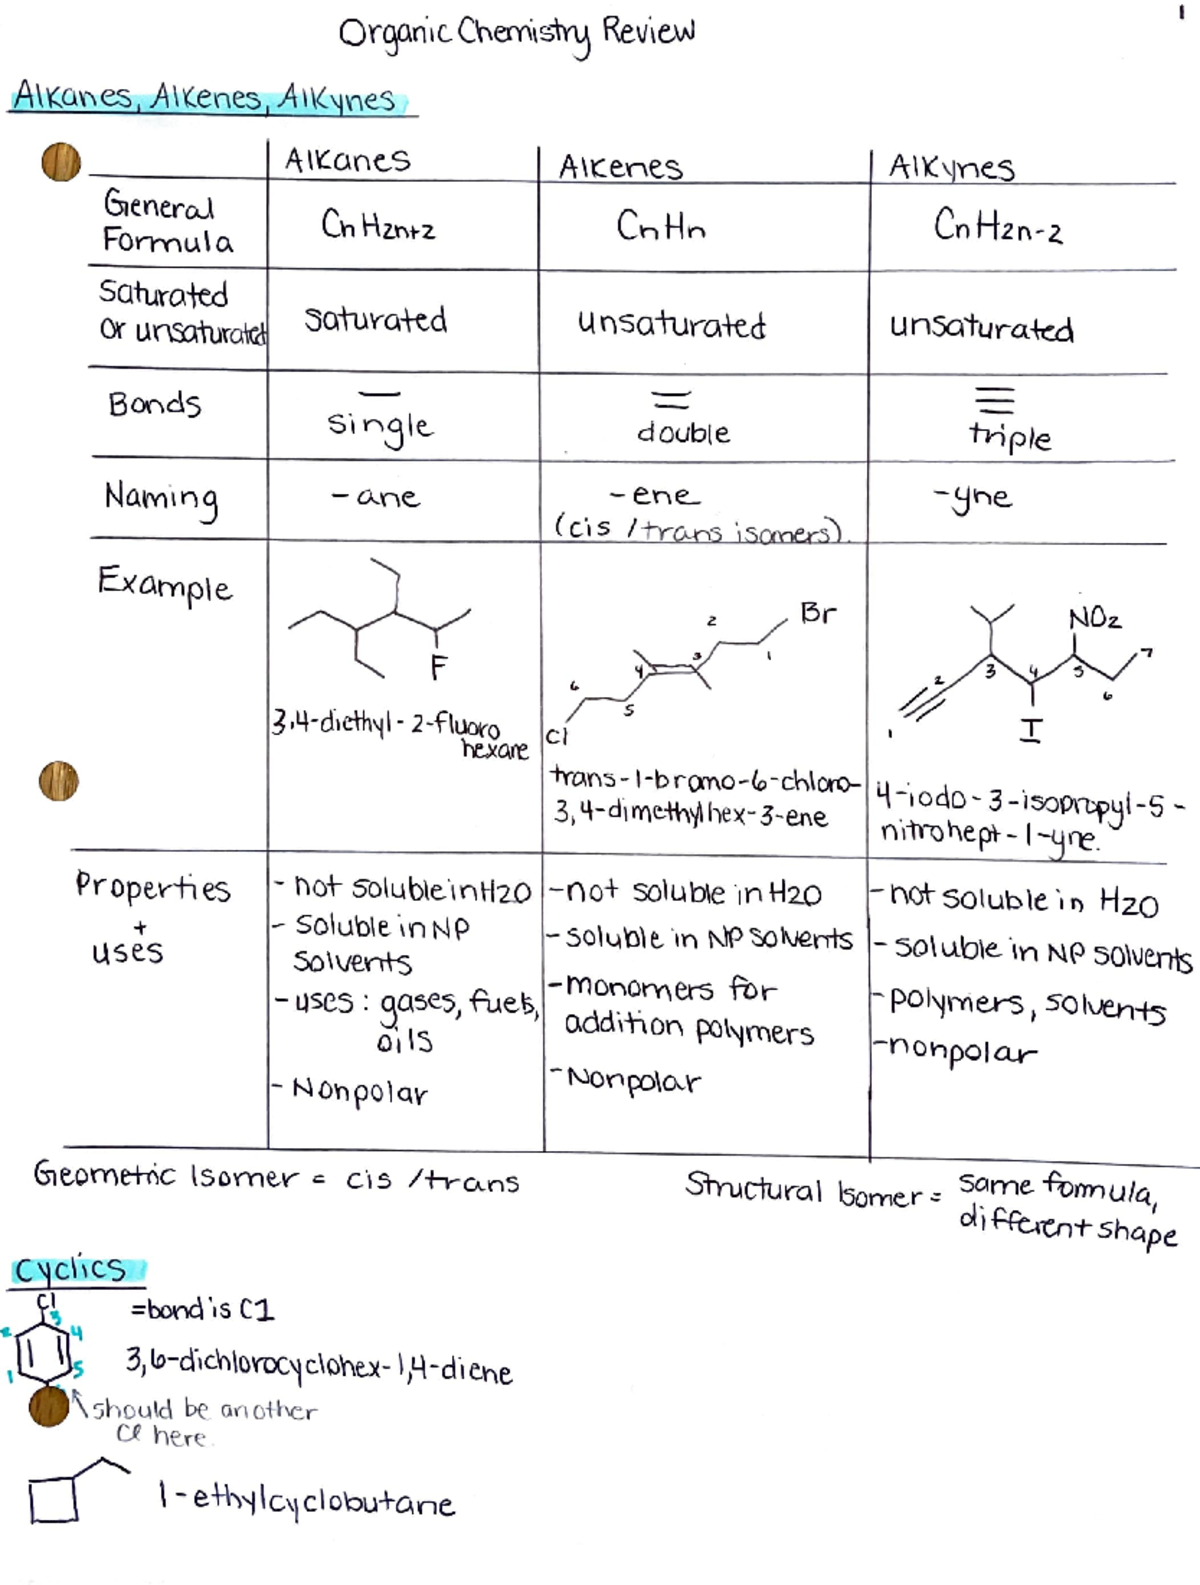 1
Organic Chemistry Review
Alkanes, Alkenes, Alkynes
Alkanes Alkenes Alkynes
General Formula CnH2n+2 CnHn CnH2n-2
Saturated or unsaturated saturated unsaturated unsaturated
Bonds single double triple
Naming -ane -ene (cis/trans isomers). -yne
Example
F
3,4-diethyl-2-fluoro
hexane
Br
2
1
3
4
6
5
Cl
trans-1-bromo-6-chloro-
3,4-dimethylhex-3-ene
NO2
7
2
3
4
5
6
1
I
4-iodo-3-isopropyl-5-
nitrohept-1-yne.
Properties
+
uses
- not soluble in H2O
- soluble in NP
solvents
- uses: gases, fuels,
oils
- Nonpolar
- not soluble in H2O
- soluble in NP solvents
- monomers for
addition polymers
- Nonpolar
- not soluble in H2O
- soluble in NP solvents
- polymers, solvents
- nonpolar
Geometric Isomer = cis/trans
Structural Isomer = same formula,
different shape
Cyclics
Cl
3
2
4
1
5
=bond is C1
3,6-dichlorocyclohex-1,4-diene
should be another
Cl here.
1-ethylcyclobutane